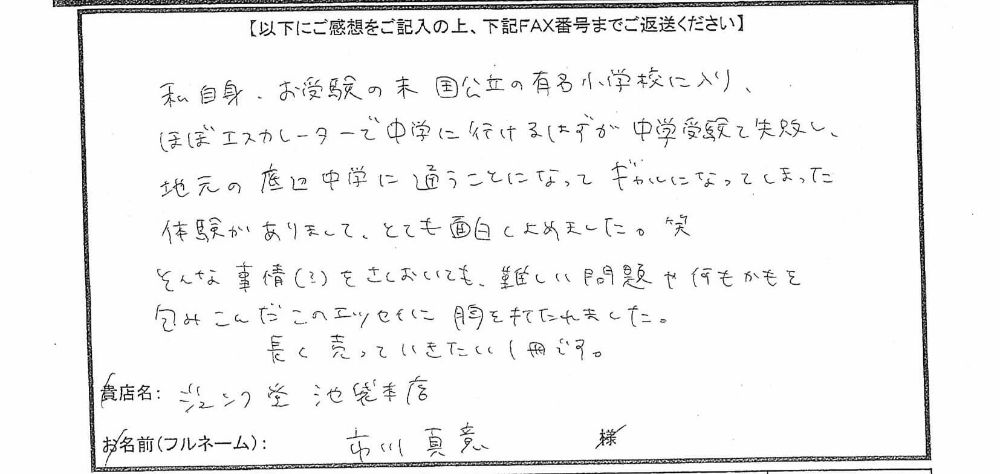 【以下にご感想をご記入の上、下記FAX番号までご返送ください】
私自身、お受験の末 国公立の有名小学校に入り、
ほぼエスカレーターで中学に行けるはずが中学受験で失敗し、
地元の底辺中学に通うことになってギャルになってしまった
体験がありまして、とても面白くよめました。笑
そんな事情(?)をさしおいても、難しい問題や何もかもを
包みこんだこのエッセイに胸を打たれました。
長く売っていきたい1冊です。
貴店名: ジュンク堂 池袋本店
お名前(フルネーム): 市川真意 様